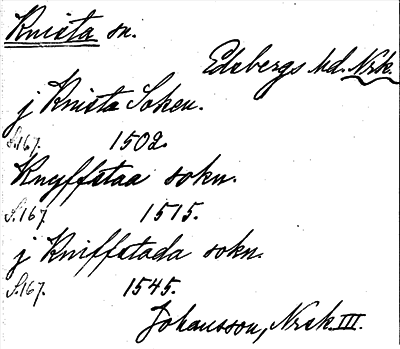 Knista sn.
Edsbergs hd. Nrk.
j Knista Soken.
S.167. 1502.
Knyffstaa sokn.
S.167 1515.
j Kniffstada sokn.
S.167. 1545.
Johansson, Nrsk. III.